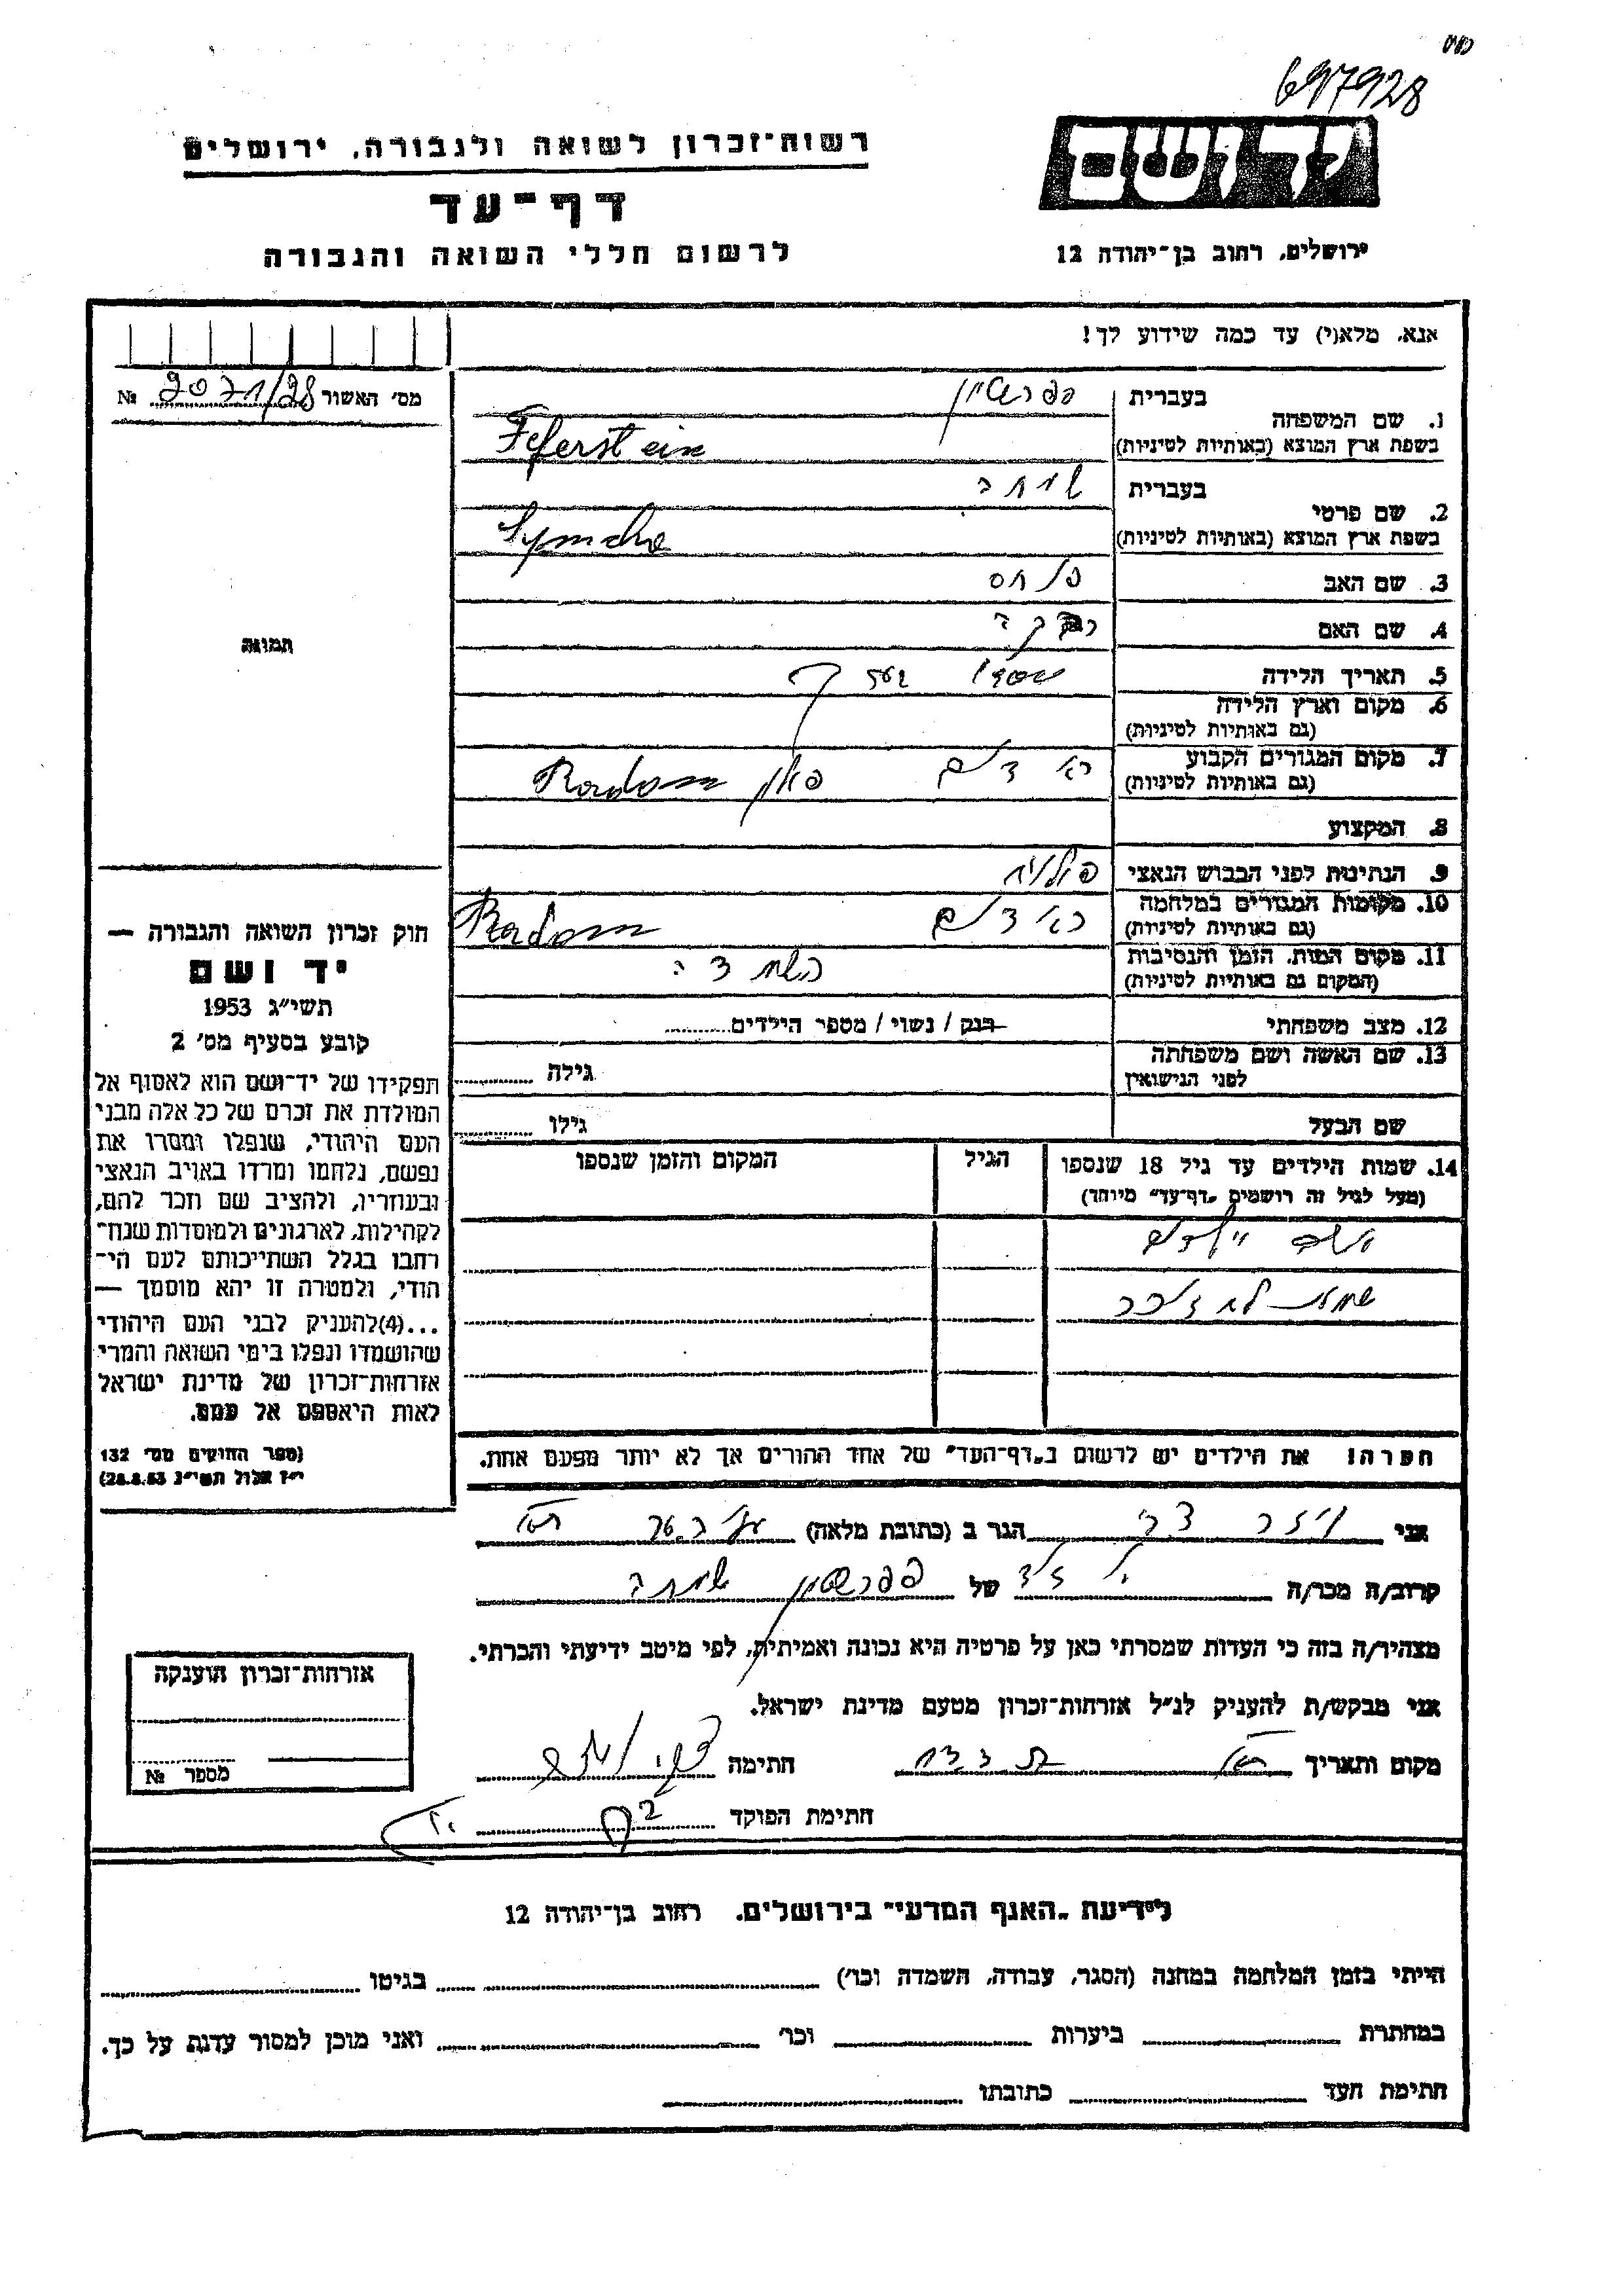 697928
רשות־זכרון לשואה ולגבורה, ירושלים
יד ושם
דף־עד
לרשום חללי השואה והגבורה
ירושלים, רחוב בן־יהודה 12
אנא, מלא(י) עד כמה שידוע לך!
מס' האשור 2071/28 №
1. שם המשפחה בעברית פפרשטיין
בשפת ארץ המוצא (באותיות לטיניות) Feferstein
2. שם פרטי בעברית שמחה
בשפת ארץ המוצא (באותיות לטיניות) Symche
3. שם האב פנחס
4. שם האם רבקה
תמונה
5. תאריך הלידה
6. מקום וארץ הלידה
(גם באותיות לטיניות)
7. מקום המגורים הקבוע ראדום פולין Radom
(גם באותיות לטיניות)
8. המקצוע
9. הנתינות לפני הכבוש הנאצי פולנית
10. מקומות המגורים במלחמה ראדום Radom
(גם באותיות לטיניות)
11. מקום המות, הזמן והנסיבות בהשמדה
(המקום גם באותיות לטיניות)
12. מצב משפחתי רווק / נשוי / מספר הילדים
13. שם האשה ושם משפחתה גילה
לפני הנישואין
שם הבעל גילו
14. שמות הילדים עד גיל 18 שנספו הגיל המקום והזמן שנספו
(מעל לגיל זה רושמים "דף־עד" מיוחד)
ילדים
שמות לא זוכר
חוק זכרון השואה והגבורה —
יד ושם
תשי"ג 1953
קובע בסעיף מס' 2
תפקידו של יד־ושם הוא לאסוף אל
המולדת את זכרם של כל אלה מבני
העם היהודי, שנפלו ומסרו את
נפשם, נלחמו ומרדו באויב הנאצי
ובעוזריו, ולהציב שם וזכר להם,
לקהילות, לארגונים ולמוסדות שנח־
רבו בגלל השתייכותם לעם הי־
הודי, ולמטרה זו יהא מוסמך —
...(4)להעניק לבני העם היהודי
שהושמדו ונפלו בימי השואה והמרי
אזרחות־זכרון של מדינת ישראל
לאות היאספם אל עמם.
(ספר החוקים מס' 132
י"ז אלול תשי"ג 28.8.53)
הערה! את הילדים יש לרשום ב"דף־העד" של אחד ההורים אך לא יותר מפעם אחת.
אני הגר ב (כתובת מלאה)
קרוב/ה מכר/ה של פפרשטיין שמחה
מצהיר/ה בזה כי העדות שמסרתי כאן על פרטיה היא נכונה ואמיתית, לפי מיטב ידיעתי והכרתי.
אני מבקש/ת להעניק לנ"ל אזרחות־זכרון מטעם מדינת ישראל.
מקום ותאריך חתימה
חתימת הפוקד
אזרחות־זכרון הוענקה
מספר №
לידיעת "האגף המדעי" בירושלים, רחוב בן־יהודה 12
הייתי בזמן המלחמה במחנה (הסגר, עבודה, השמדה וכו') בגיטו
במחתרת ביערות וכו' ואני מוכן למסור עדות על כך.
חתימת העד כתובתו